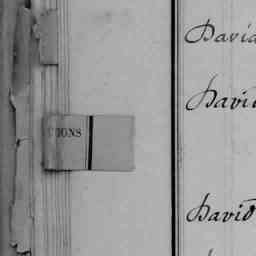 David
David
IONS
David